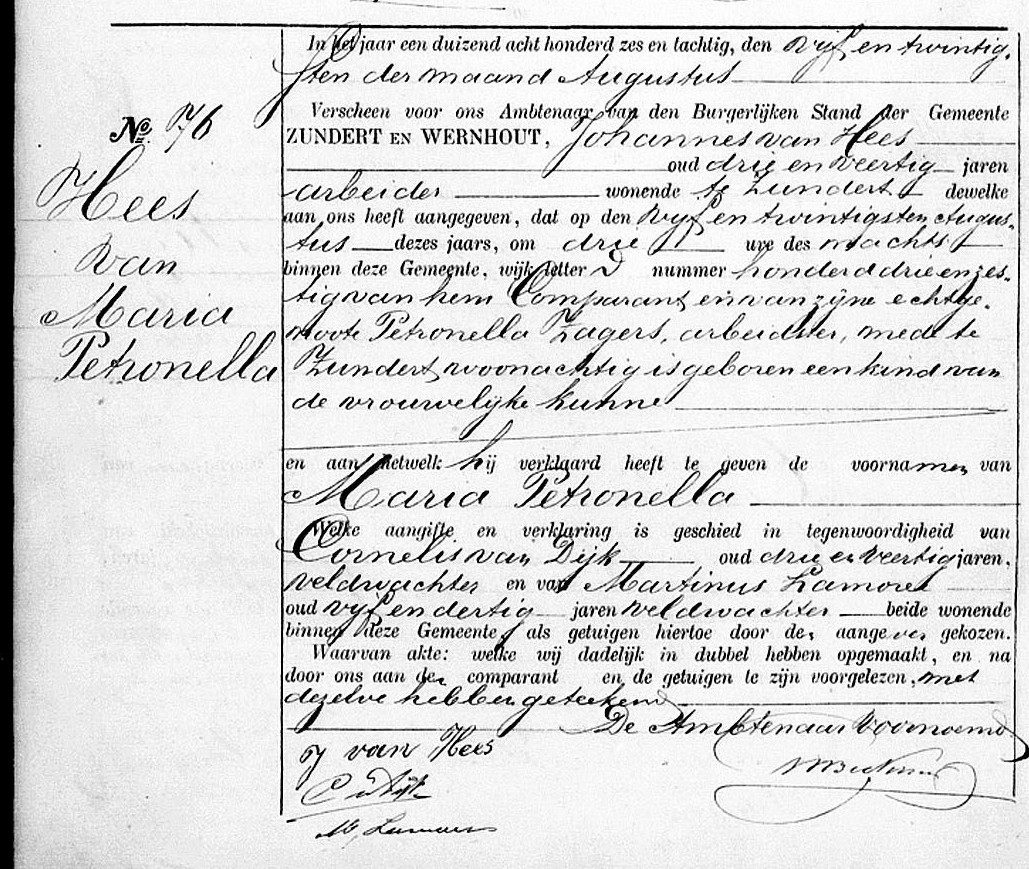 In het jaar een duizend acht honderd zes en tachtig, den vijf en twintig-
sten der maand Augustus
No. 76
Hees
van
Maria
Petronella
Verscheen voor ons Ambtenaar van den Burgerlijken Stand der Gemeente
ZUNDERT EN WERNHOUT, Johannes van Hees
oud drie en veertig jaren
arbeider wonende te Zundert dewelke
aan ons heeft aangegeven, dat op den vijf en twintigsten Augus-
tus dezes jaars, om drie ure des nachts
binnen deze Gemeente, wijk letter D nummer honderd drie en zes-
tig van hem Comparant en van zijne echtge-
noote Petronella Zagers, arbeidster, mede te
Zundert woonachtig is geboren een kind van
de vrouwelijke kunne
en aan hetwelk hij verklaard heeft te geven de voornamen van
Maria Petronella
Welke aangifte en verklaring is geschied in tegenwoordigheid van
Cornelis van Dijk oud drie en veertig jaren,
veldwachter en van Martinus
oud vijf en dertig jaren veldwachter beide wonende
binnen deze Gemeente, als getuigen hiertoe door den aangever gekozen.
Waarvan akte: welke wij dadelijk in dubbel hebben opgemaakt, en na
door ons aan den comparant en de getuigen te zijn voorgelezen, met
dezelve hebben geteekend
De Ambtenaar voornoemd
J van Hees
C v Dijk
M,